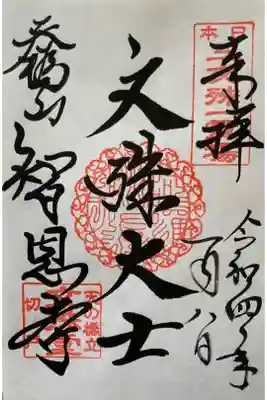 奉拝
令和四年
一月八日
文殊大士
天橋山
智恩寺
日本三
天の橋立